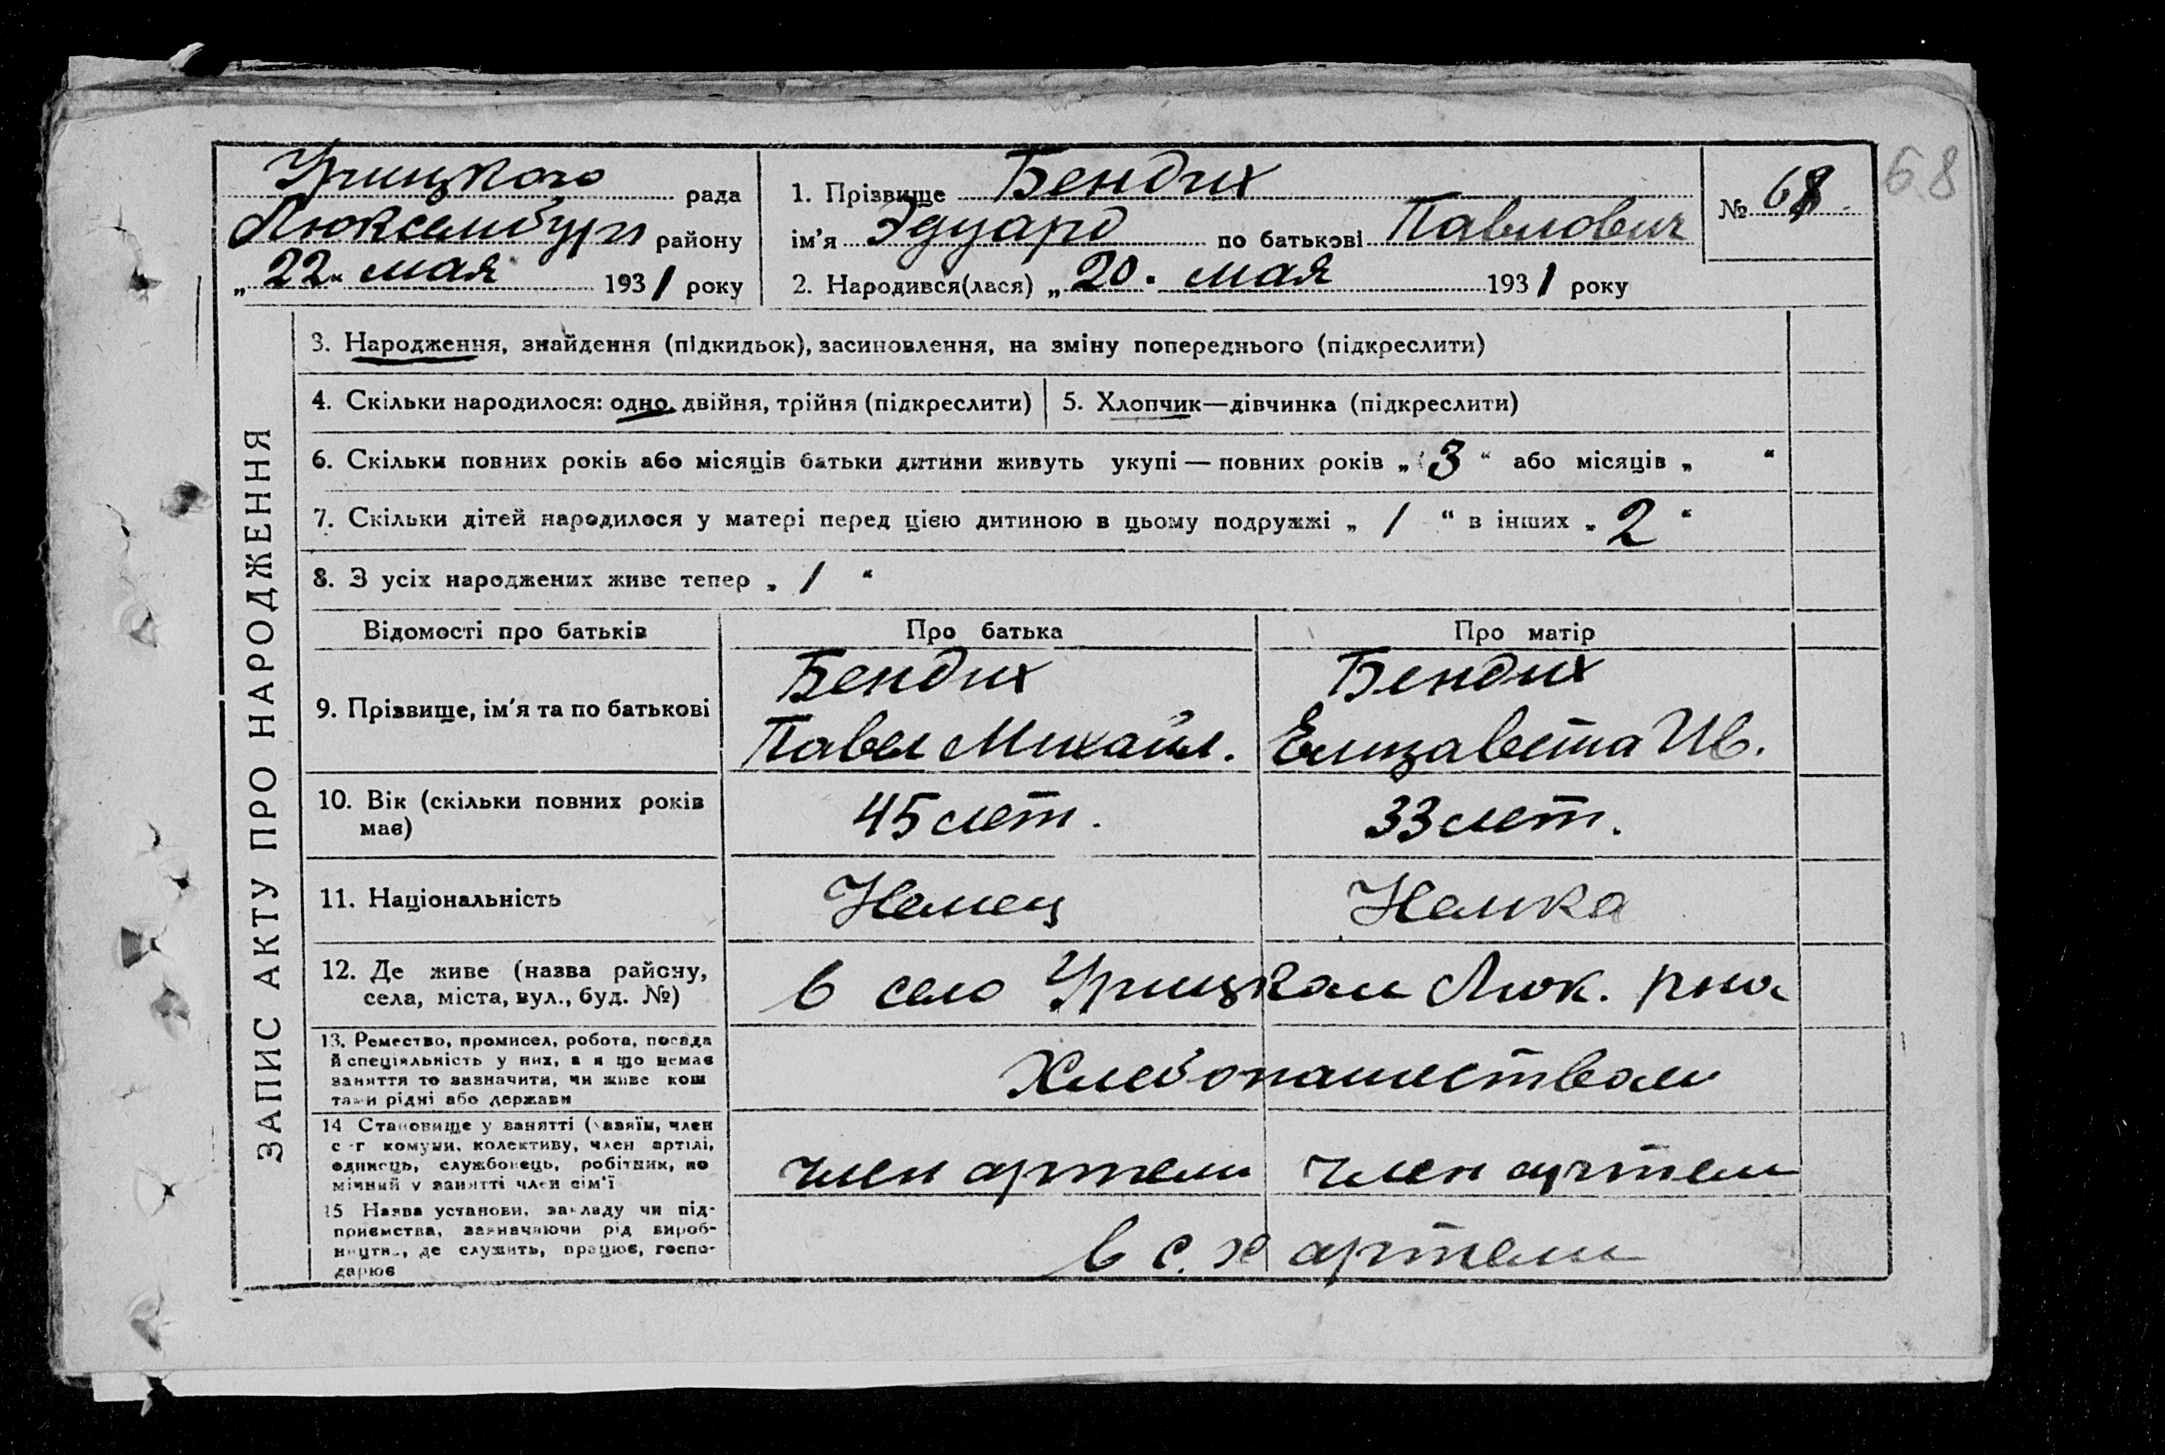 Урицкого рада
Люксембург району
„22“ мая 1931 року
1. Прізвище Бендих
ім'я Эдуард по батькові Павлович
2. Народився(лася) „20. мая 1931 року
№ 68.
68
ЗАПИС АКТУ ПРО НАРОДЖЕННЯ
3. Народження, знайдення (підкидьок), засиновлення, на зміну попереднього (підкреслити)
4. Скільки народилося: одно, двійня, трійня (підкреслити)
5. Хлопчик—дівчинка (підкреслити)
6. Скільки повних років або місяців батьки дитини живуть укупі — повних років „3“ або місяців „ “
7. Скільки дітей народилося у матері перед цією дитиною в цьому подружжі „1“ в інших „2“
8. З усіх народжених живе тепер „1“
Відомості про батьків Про батька Про матір
9. Прізвище, ім'я та по батькові
Бендих
Павел Михайл.
Бендих
Елизавета Ив.
10. Вік (скільки повних років
має)
45 лет. 33 лет.
11. Національність Немец Немка
12. Де живе (назва району,
села, міста, вул., буд. №)
в село Урицком Люк. рна
13. Ремество, промисел, робота, посада
й спеціяльність у них, а я що немає
заняття то зазначити, чи живе кош
тами рідні або держави
Хлебопашеством
14 Становище у занятті (хазяїн, член
с-г комуни, колективу, член артілі,
одинець, службовець, робітник, по
мічний у занятті член сім'ї
член артели член артели
15 Назва установи, закладу чи під-
приємства, зазначаючи рід вироб-
ництв., де служить, працює, госпо-
дарює
в с. х артели